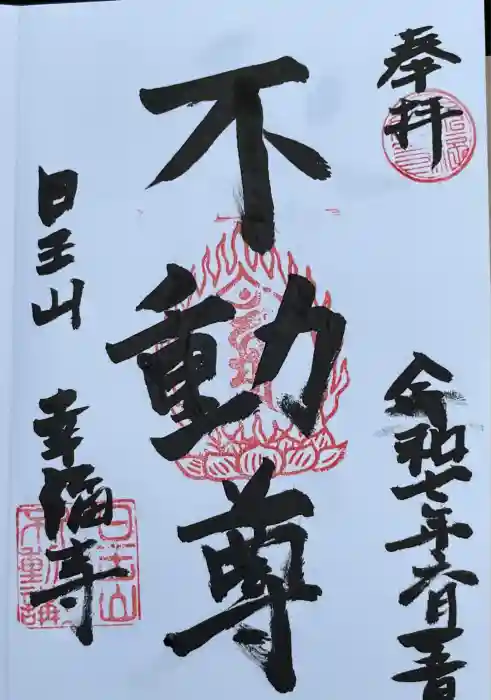 奉拝
令和七年六月一五日
不動尊
日王山
幸福寺